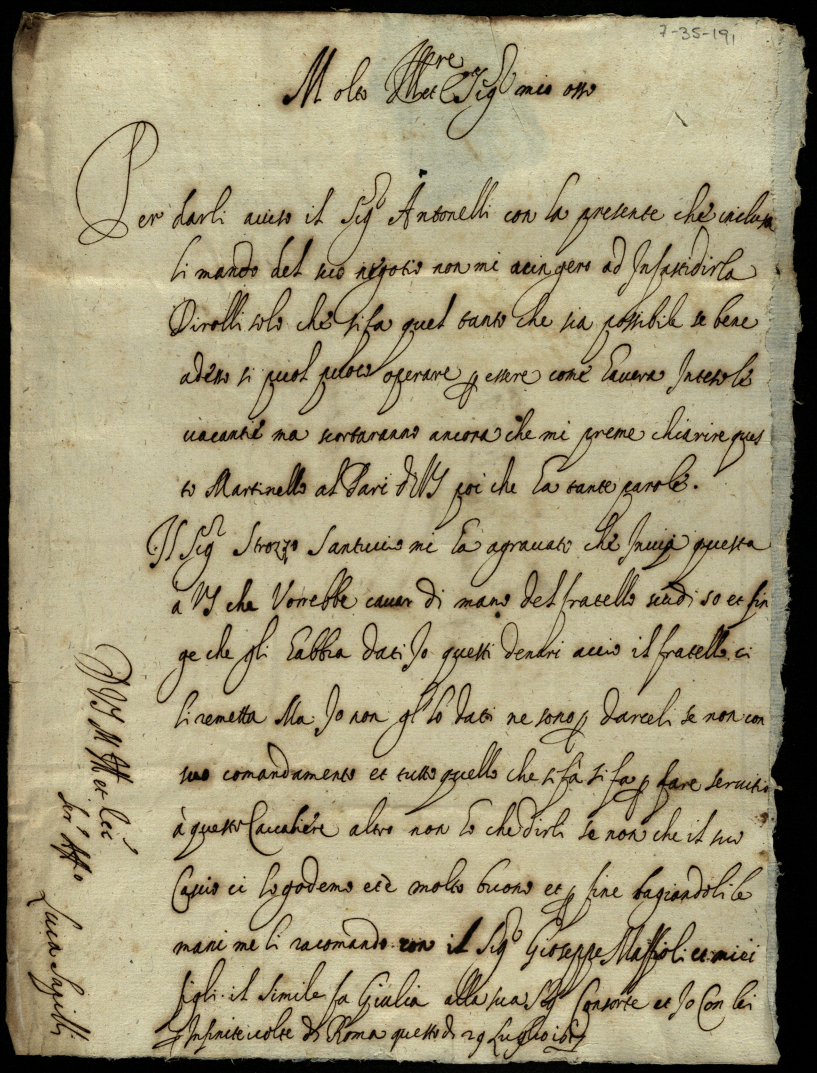 7-35-191
Molto Ill.re et Sig.r mio oss.o
Per darli aviso il Sig.r Antonelli con la presente che inclusa
li mando del suo negotio non mi acingero ad Infastidirla
Dirolli solo che si fa quel tanto che sia possibile se bene
adesso si puol puoco operare p essere come havera Inteso le
vacantie ma scortaranno ancora che mi preme chiarire ques
to Martinello al Pari di VS poi che ha tante parole.
Il Sig.r Strozzo Santucci mi ha agravato che Invia questa
a VS che Vorrebbe cavar di mano del fratello scudi 50 et fin
ge che gli habbia dati Io questi denari accio il fratello ci
li remetta Ma Io non gl'ho dati ne sono p darceli se non con
suo comandamento et tutto quello che si fà si fa p fare servitio
à questo Cavaliere altro non ho che dirli se non che il suo
Casio ci lo godemo et è molto buono et p fine bagiandoli le
mani me li racomando con il Sig.r Gioseppe Maffioli et miei
figli il simile fa Giulia alla sua Sig.ra Consorte et Io Con lei
Infinite volte di Roma questo di 29 Luglio
D VS M Ill et Ecc
Ser.r Aff.o
Luca